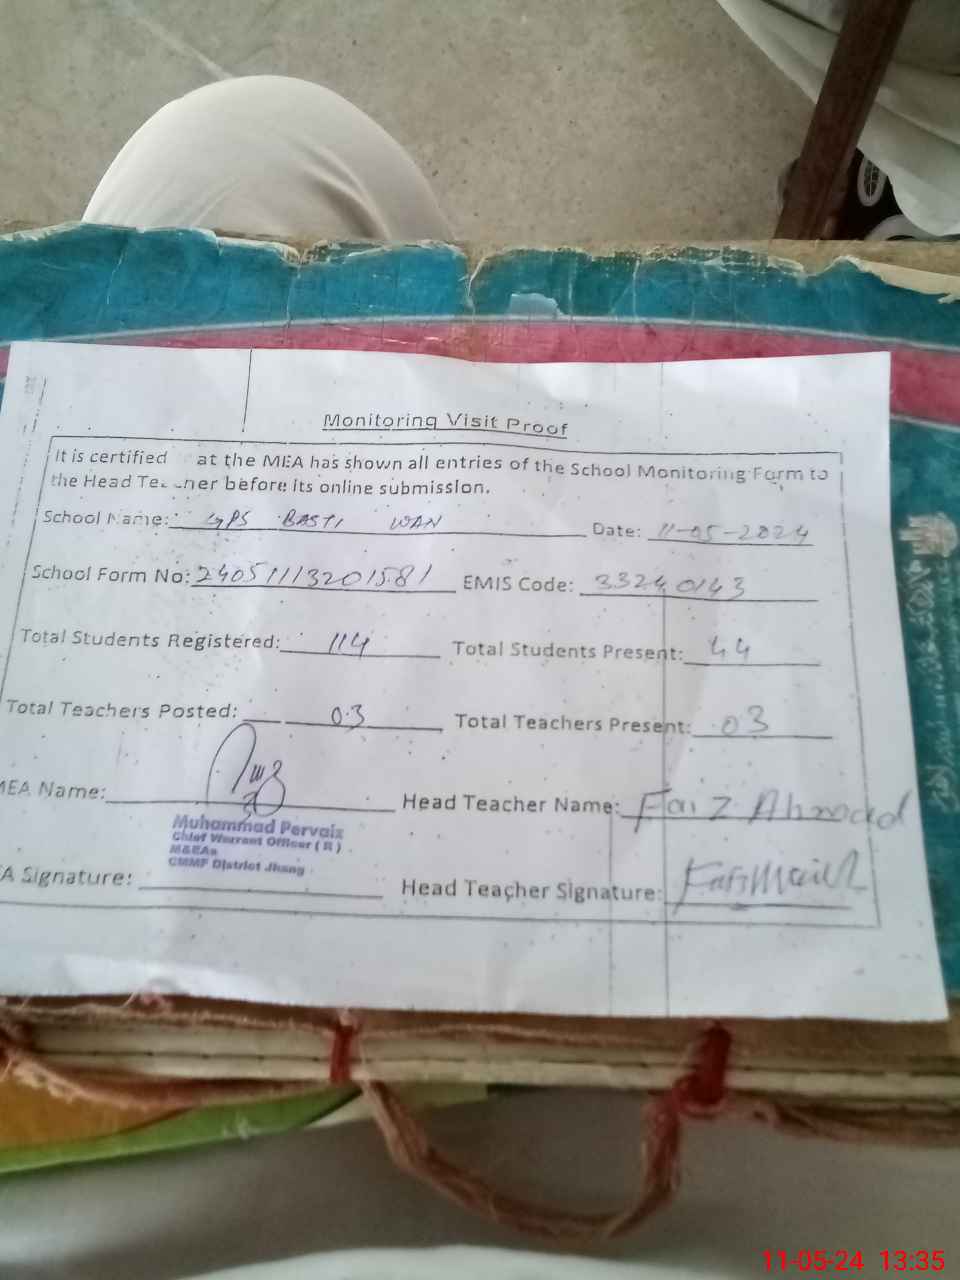 Monitoring Visit Proof
It is certified at the MEA has shown all entries of the School Monitoring Form to
the Head Te ner before its online submission.
School Name: GPS BASTI WAN Date: 11-05-2024
School Form No: 240511113201581 EMIS Code: 33240143
Total Students Registered: 114 Total Students Present: 44
Total Teachers Posted: 03 Total Teachers Present: 03
MEA Name: Head Teacher Name: Faiz Ahmad
Muhammad Pervaiz
Chief Warrant Officer ( R )
M&EAs
CMMF District Jhang
A Signature: Head Teacher Signature:
11-05-24 13:35